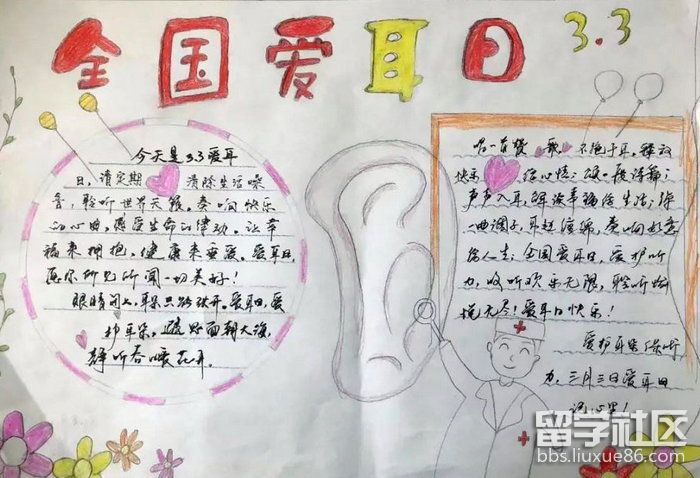 全国爱耳日 3.3
今天是3.3爱耳
日,请定期 清除生活噪
音,聆听世界天籁。奏响快乐
的心曲,感受生命的律动。让幸
福来拥抱,健康来垂爱。爱耳日,
愿你所见所闻一切美好!
眼睛闭上,耳朵只路张开。爱耳日,爱
护耳朵。面朝大海,
静听春暖花开。
唱一首赞 歌 不绝于耳,释放
快乐 好心情;
声声入耳,解读幸福好生活;
一曲调子,耳赶演绎,奏响好意
好人生;全国爱耳日,爱护听
力,收听欢乐无限,聆听
境无尽!爱耳日快乐!
爱护耳朵保听
力,三月三日爱耳日
记心里!
留学社区
bbs.liuxue86.com